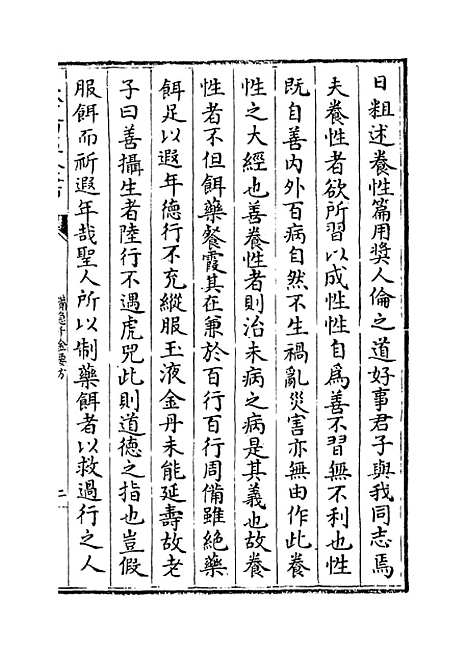 日粗述養性篇用奬人倫之道好事君子與我同志焉
夫養性者欲所習以成性性自為善不習無不利也性
既自善内外百病自然不生禍亂災害亦無由作此養
性之大經也善養性者則治未病之病是其義也故養
性者不但餌藥餐霞其在兼於百行百行周備雖絶藥
餌足以遐年德行不充縱服玉液金丹未能延壽故老
子曰善攝生者陸行不遇虎兕此則道德之指也豈假
服餌而祈遐年哉聖人所以制藥餌者以救過行之人
備急千金要方
二